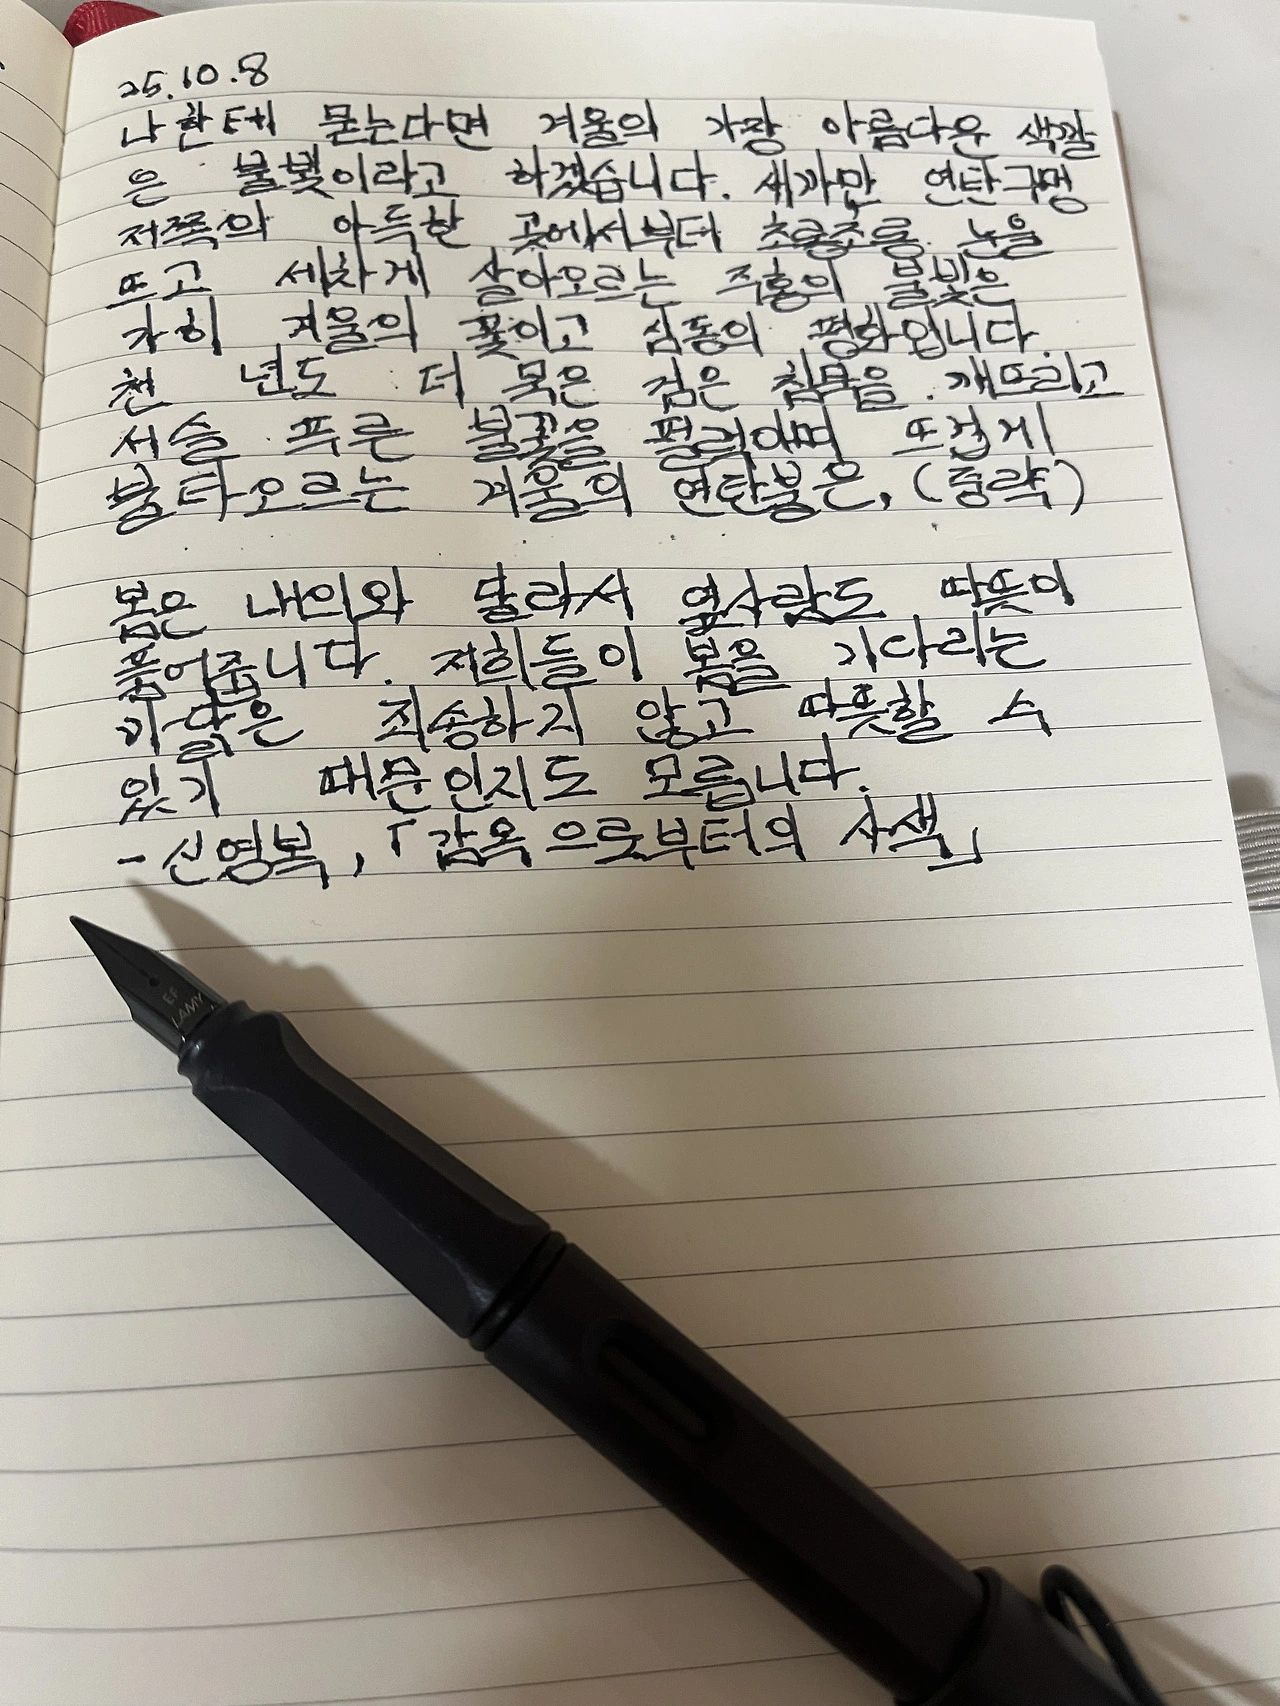 25.10.8
나한테 묻는다면 겨울의 가장 아름다운 색깔
은 불빛이라고 하겠습니다. 새까만 연탄구멍
저쪽의 아득한 곳에서부터 초롱초롱 눈을
뜨고 세차게 살아오르는 주홍의 불빛은
가히 겨울의 꽃이고 심동의 평화입니다.
천 년도 더 묵은 검은 침묵을 깨뜨리고
서슬 푸른 불꽃을 펄럭이며 뜨겁게
불타오르는 겨울의 연탄불은, (중략)
봄은 내의와 달라서 옆사람도 따뜻이
품어줍니다. 저희들이 봄을 기다리는
까닭은 죄송하지 않고 따뜻할 수
있기 때문인지도 모릅니다.
- 신영복, 「감옥으로부터의 사색」
EF
LAMY